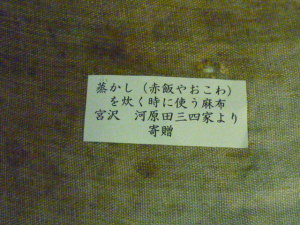 蒸かし（赤飯やおこわ）
を炊く時に使う麻布
宮沢　河原田三四家より
寄贈